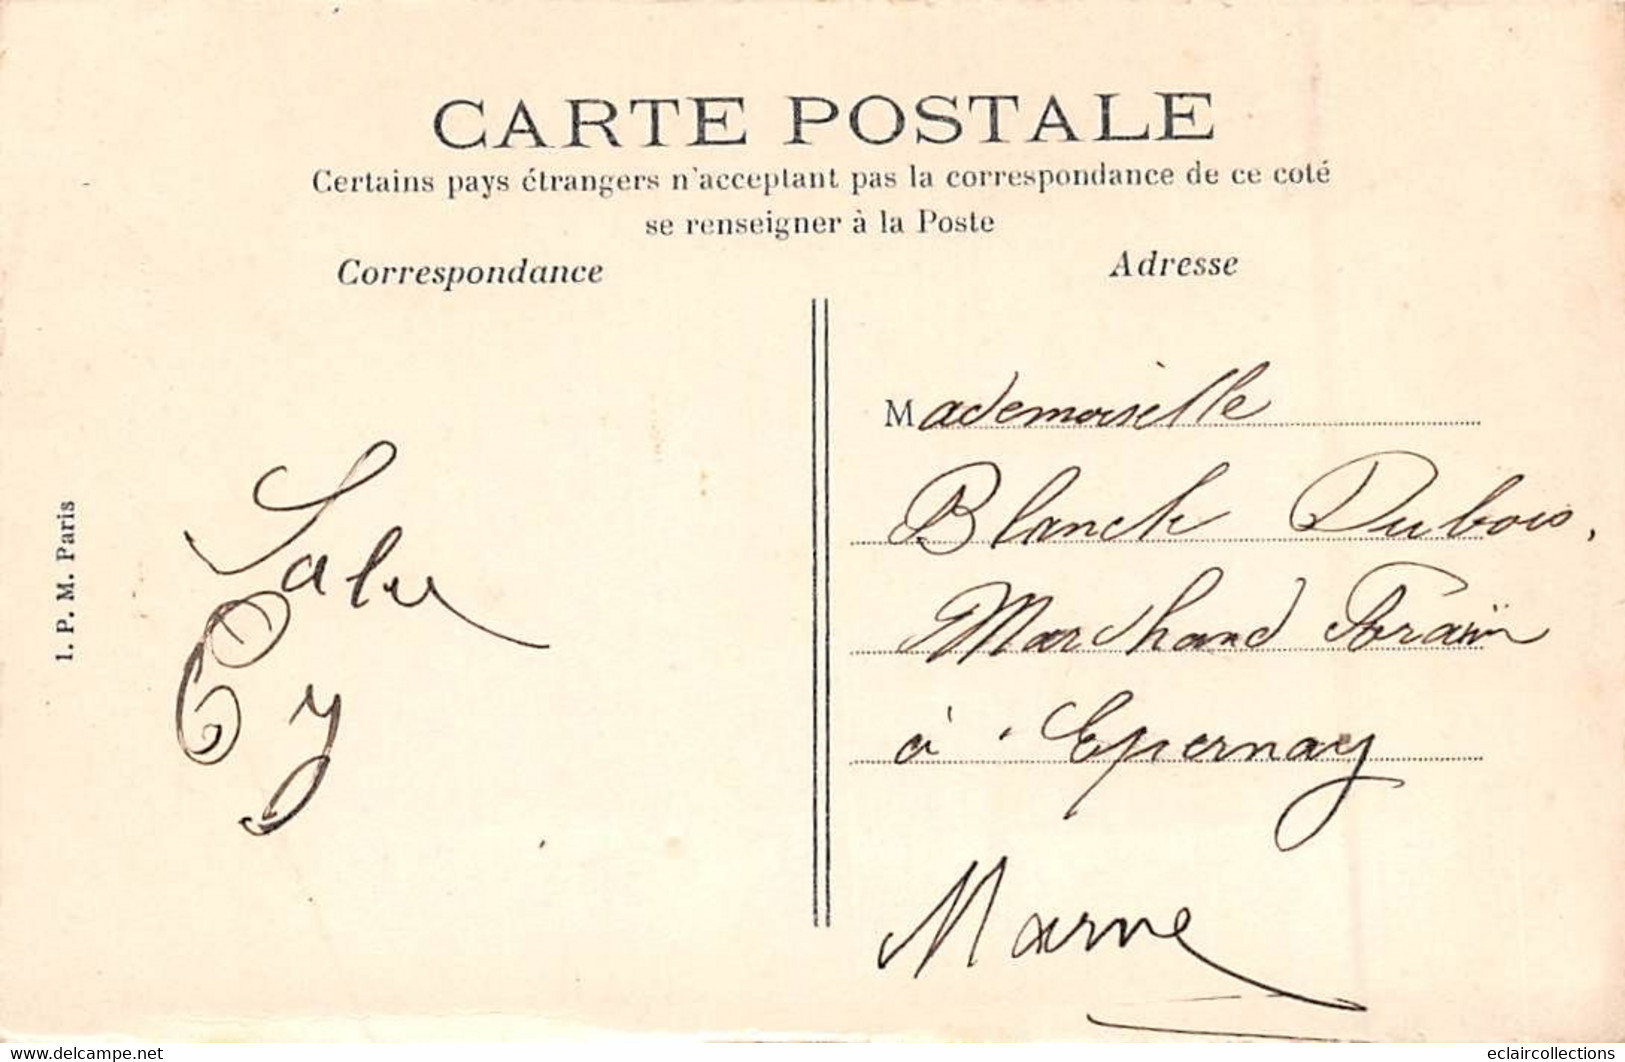 CARTE POSTALE
Certains pays étrangers n'acceptant pas la correspondance de ce coté
se renseigner à la Poste
Correspondance
Adresse
Salu
Mademoiselle
Blanch Dubois,
Marchand Forain
à Epernay
Marne
I. P. M. Paris
eclaircollections